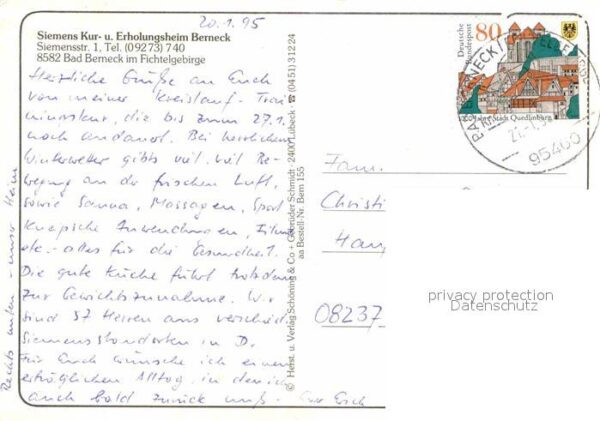 20.1.95
Siemens Kur- u. Erholungsheim Berneck
Siemensstr. 1, Tel. (09273) 740
8582 Bad Berneck im Fichtelgebirge
Herzliche Grüße an Euch
von meiner Kreislauf-Trai
ningskur, die bis zum 27.1.
noch andauert. Bei herrlichem
Winterwetter gibts viel, viel Be-
wegung an der frischen Luft,
sowie Sauna, Massagen, Sport
Kneipsche Anwendungen, Filme
etc. - alles für die Gesundheit.
Die gute Küche führt trotzdem
zur Gewichtszunahme. Wir
sind 57 Herren aus verschied.
Siemensstandorten in D.
Für Euch wünsche ich einen
erträglichen Alltag, in den ich
auch bald zurück muß - Euer Erich
Rechts unten - unser Heim
© Herst. u. Verlag Schöning & Co + Gebrüder Schmidt · 2400 Lübeck · ☎ (04 51) 3 12 24
aa Bestell-Nr. Bern 155
Deutsche
Bundespost
80
1000 Jahre Stadt Quedlinburg
95460
Fam.
Christi
Hau
08237
privacy protection
Datenschutz